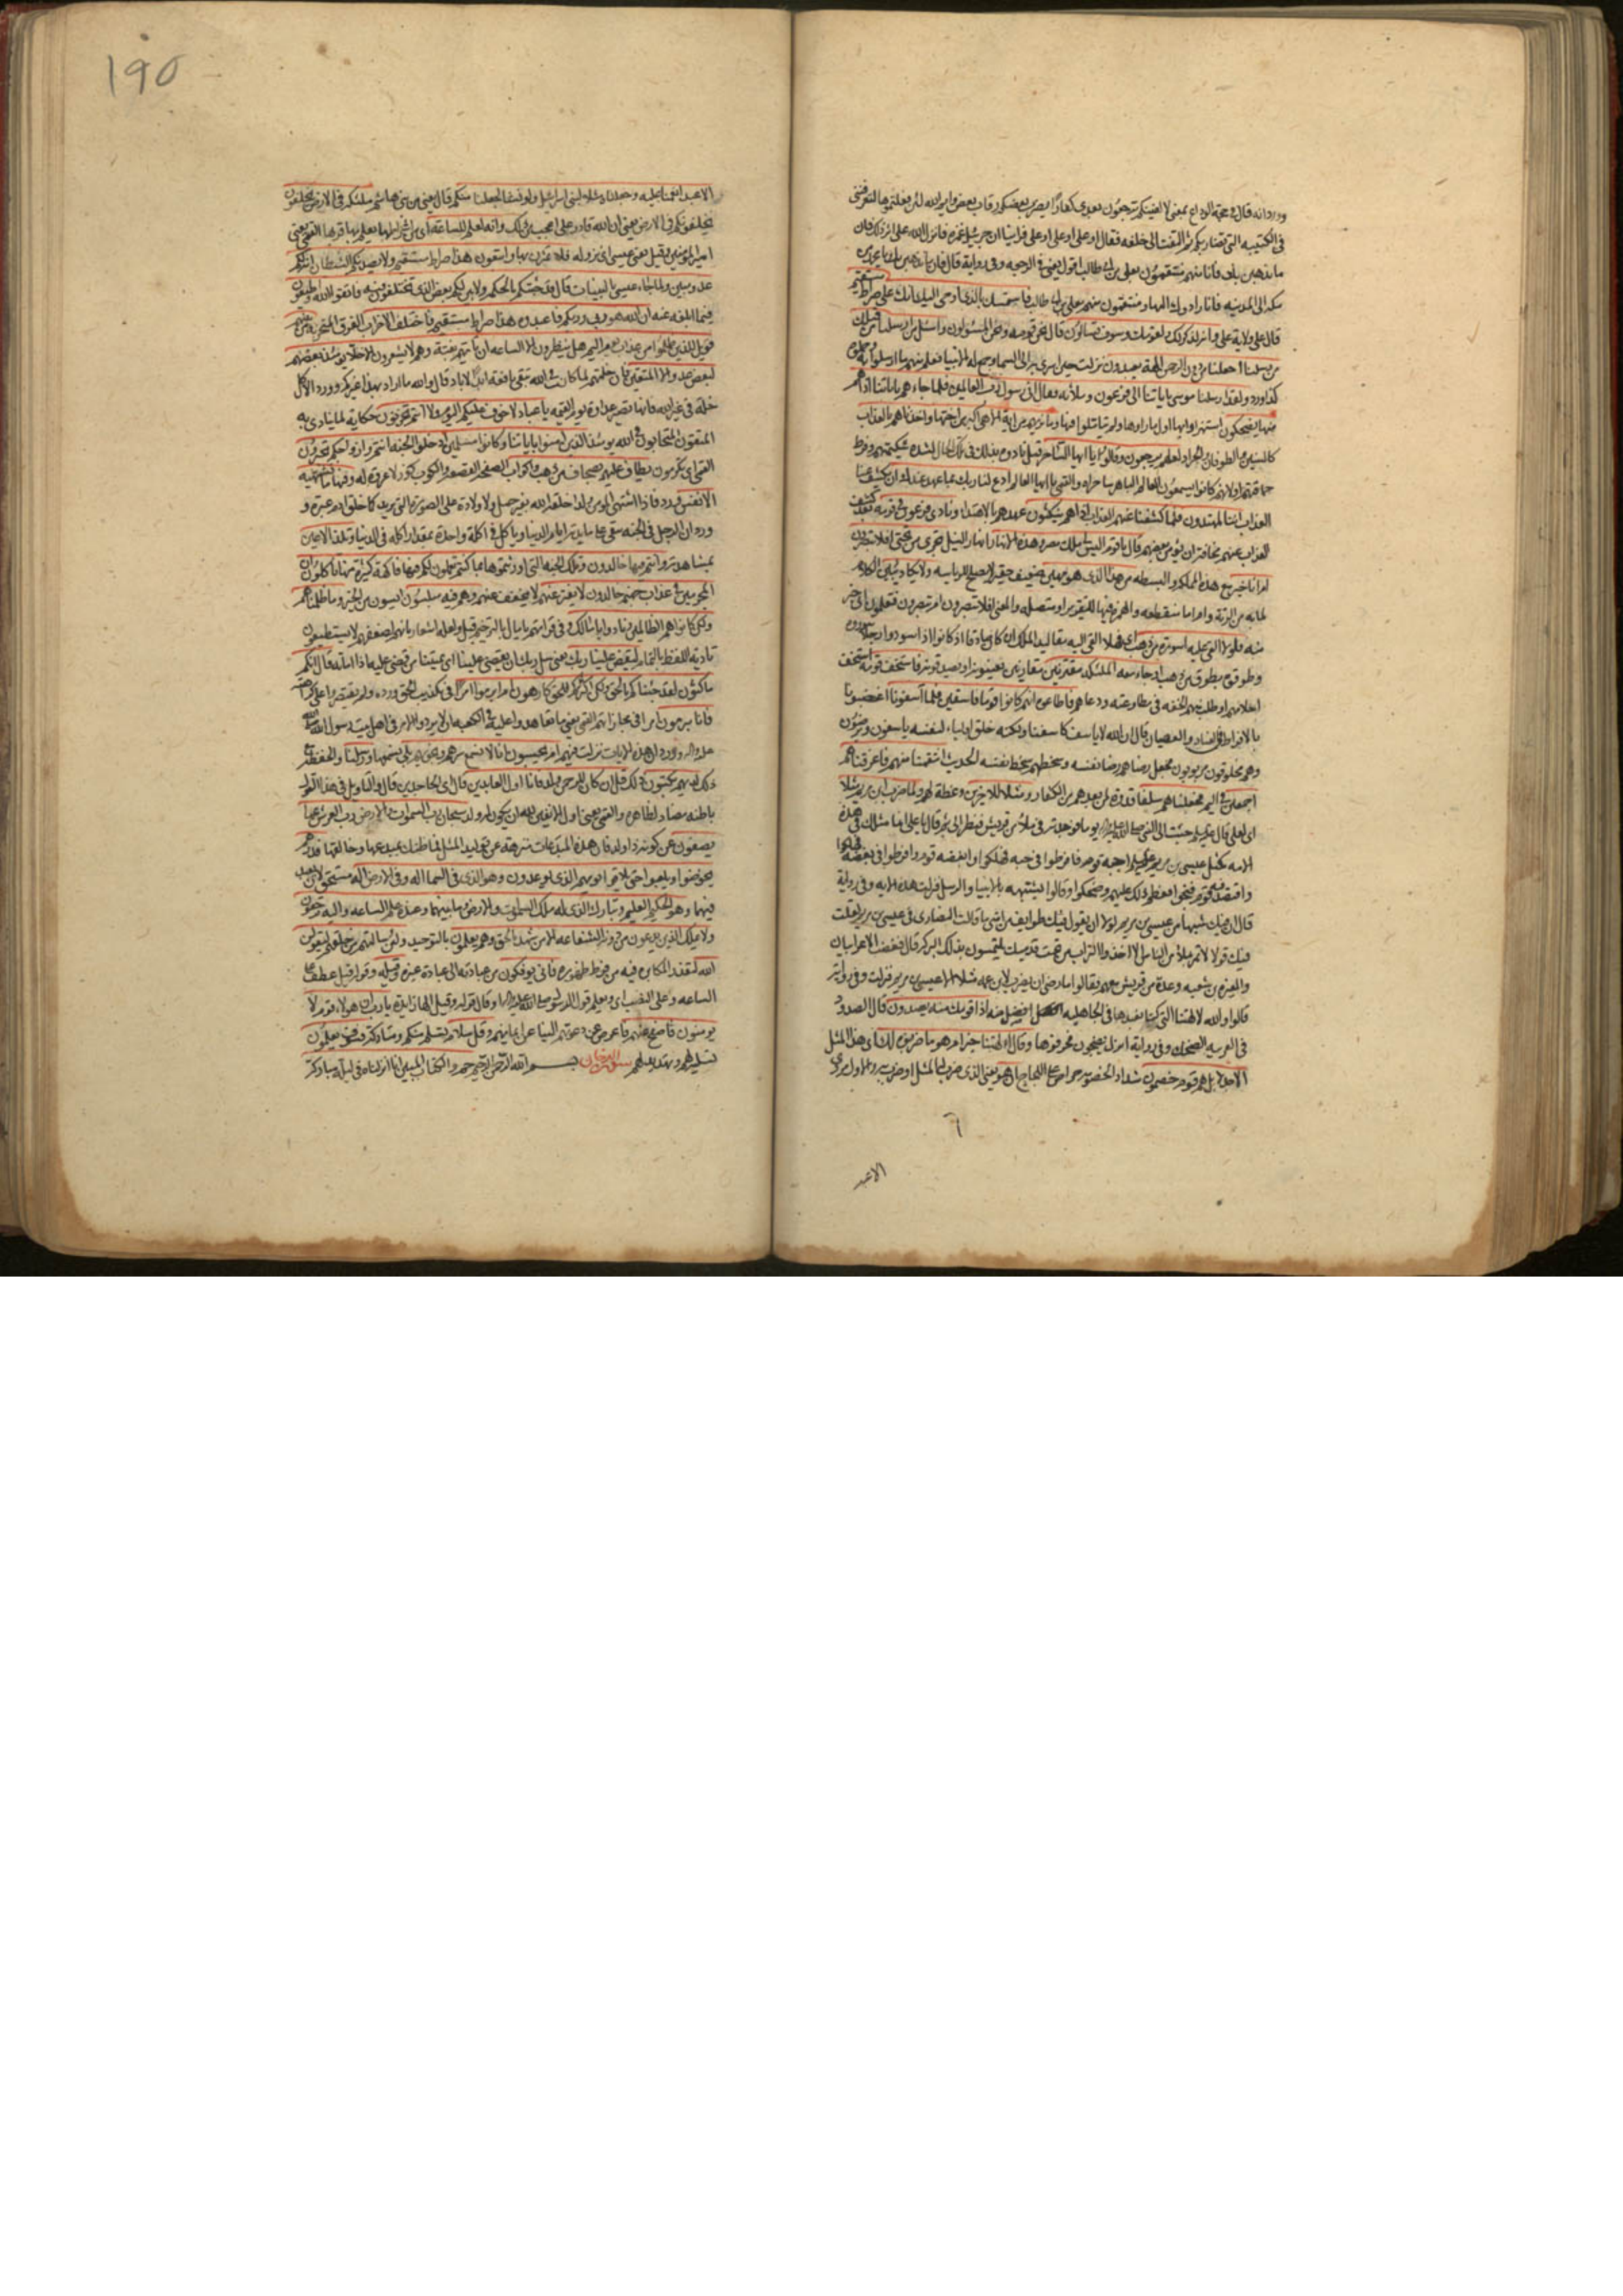 وورد انه قال في حجة الوداع بمنى لا الفينكم ترجعون بعدي كفارا يضرب بعضكم رقاب بعض وايم الله لئن فعلتموها لتعرفنني
في الكتيبة التي تضاربكم ثم التفت الى خلفه فقال او علي او علي او علي فراينا ان جبرئيل غمزه فانزل الله على اثر ذلك فان
ما نذهبن بك فانا منهم منتقمون بعلي بن ابي طالب اقول يعني في الرجعه وفي رواية قال فاما نذهبن بك يا محمد من
مكه الى المدينه فانا رادوك اليها ومنتقمون منهم بعلي بن ابي طالب فاستمسك بالذي اوحي اليك انك على صراط مستقيم
قال على ولاية علي وانه لذكر لك ولقومك وسوف تسالون قال نحن قومه ونحن المسؤلون واسئل من ارسلنا من قبلك
من رسلنا اجعلنا من دون الرحمن الهة يعبدون نزلت حين اسري به الى السما وجمع له الانبيا فعلم منهم ما ارسلوا به
كذا ورد ولقد ارسلنا موسى باياتنا الى فرعون وملائه فقال اني رسول رب العالمين فلما جاءهم باياتنا اذا هم
منها يضحكون استهزاوا بها اول ما راوها ولم يتاملوا فيها وما نريهم من اية الا هي اكبر من اختها واخذناهم بالعذاب
كالسنين والطوفان والجراد لعلهم يرجعون وقالوا يا ايها الساحر قيل نادوه بذلك في تلك الحال لشدة شكيمتهم وفرط
حماقتهم او لانهم كانوا يسمون العالم الباهر ساحرا والقمي يا ايها العالم ادع لنا ربك بما عهد عندك ان يكشف عنا
العذاب اننا لمهتدون فلما كشفنا عنهم العذاب اذا هم ينكثون عهدهم بالاهتداء ونادى فرعون في قومه بعد كشف
العذاب عنهم مخافة ان يؤمن بعضهم قال يا قوم اليس لي ملك مصر وهذه الانهار انهار النيل تجري من تحتي افلا تبصرون
ام انا خير مع هذه المملكة والبسطه من هذا الذي هو مهين ضعيف حقير لا يصلح للرياسه ولا يكاد يبين الكلام
لما به من الرتة وام اما منقطعه والهمزة فيها للتقرير او متصله والمعنى افلا تبصرون ام تبصرون فتعلمون اني خير
منه فلولا القي عليه اسورة من ذهب اي فهلا القي اليه مقاليد الملك ان كان صادقا اذ كانوا اذا سودوا رجلا سوروه
وطوقوه بطوق من ذهب او جاء معه الملئكه مقترنين مقارنين يعينونه او يصدقونه فاستخف قومه استخف
احلامهم او طلب منهم الخفه في مطاوعته ودعاهم فاطاعوه انهم كانوا قوما فاسقين فلما اسفونا اغضبونا
بالافراط في العناد والعصيان قال ان الله لا ياسف كاسفنا ولكنه خلق اولياء لنفسه ياسفون ويرضون
وهم مخلوقون مربوبون فجعل رضاهم رضا نفسه وسخطهم سخط نفسه الحديث انتقمنا منهم فاغرقناهم
اجمعين في اليم فجعلناهم سلفا قدوة لمن بعدهم من الكفار ومثلا للاخرين وعظة لهم ولما ضرب ابن مريم مثلا
اي لعلي قال علي جئت الى النبي صلى الله عليه واله يوما فوجدته في ملا من قريش فنظر الي ثم قال يا علي انما مثلك في هذه
الامه كمثل عيسى بن مريم احبه قوم فافرطوا في حبه فهلكوا وابغضه قوم وافرطوا في بغضه فهلكوا
واقتصد فيه قوم فنجوا فعظم ذلك عليهم وضحكوا وقالوا يشبهه بالانبيا والرسل فنزلت هذه الايه وفي رواية
قال ان فيك شبها من عيسى بن مريم لولا ان يقول فيك طوايف من امتي ما قالت النصارى في عيسى بن مريم لقلت
فيك قولا لا تمر بملا من الناس الا اخذوا التراب من تحت قدميك يلتمسون بذلك البركة قال فغضب الاعرابيان
والمغيرة بن شعبه وعدة من قريش معهم فقالوا ما رضي ان يضرب لابن عمه مثلا الا عيسى بن مريم فنزلت وفي رواية
قالوا والله لالهتنا التي كنا نعبدها في الجاهليه افضل منه اذا قومك منه يصدون قال الصدود
في العربيه الضحك وفي رواية انزل يضجون فحرفوها وقالوا االهتنا خير ام هو ما ضربوه لك اي هذا المثل
الا جدلا بل هم قوم خصمون شداد الخصومة حراص على اللجاج ان هو يعني الذي ضرب به المثل
الا عبد
١٩٥
الا عبد انعمنا عليه وجعلناه مثلا لبني اسرائيل ولو نشاء لجعلنا منكم قال يعني من بني هاشم ملئكة في الارض يخلفون
يخلفونكم في الارض يعني ان الله قادر على اعجب من ذلك وانه لعلم للساعة اي من اشراطها يعلم بها قربها القمي يعني
امير المؤمنين وقيل يعني عيسى اي نزوله فلا تمترن بها واتبعون هذا صراط مستقيم ولا يصدنكم الشيطان انه لكم
عدو مبين ولما جاء عيسى بالبينات قال قد جئتكم بالحكمة ولابين لكم بعض الذي تختلفون فيه فاتقوا الله واطيعون
فيما ابلغه عنه ان الله هو ربي وربكم فاعبدوه هذا صراط مستقيم فاختلف الاحزاب الفرق المتحزبه من بينهم
فويل للذين ظلموا من عذاب يوم اليم هل ينظرون الا الساعه ان تاتيهم بغتة وهم لا يشعرون الاخلاء يومئذ بعضهم
لبعض عدو الا المتقين فان خلتهم لما كانت في الله تبقى نافعة ابد الاباد قال والله ما اراد بهذا غيركم وورد الا كل
خلة في غير الله فانها تصير عداوة يوم القيمه يا عباد لا خوف عليكم اليوم ولا انتم تحزنون حكاية لما ينادى به
المتقون المتحابون في الله يومئذ الذين امنوا باياتنا وكانوا مسلمين ادخلوا الجنة انتم وازواجكم تحبرون
القمي اي يكرمون يطاف عليهم بصحاف من ذهب واكواب الصحفه القصعه والكوب كوز لا عروة له وفيها ما تشتهيه
الانفس ورد فاذا اشتهى المومن ولدا خلقه الله بغير حمل ولا ولاده على الصورة التي يريد كما خلق ادم عبرة و
ورد ان الرجل في الجنه يبقى على مايدته ايام الدنيا وياكل في اكلة واحدة بمقدار اكله في الدنيا وتلذ الاعين
بمشاهدته وانتم فيها خالدون وتلك الجنه التي اورثتموها بما كنتم تعملون لكم فيها فاكهة كثيرة منها تاكلون ان
المجرمين في عذاب جهنم خالدون لا يفتر عنهم لا يخفف عنهم وهم فيه مبلسون ايسون من الخير وما ظلمناهم
ولكن كانوا هم الظالمين ونادوا يا مالك وفي قراءتهم يا مال بالترخيم قيل ولعله اشعار بانهم لضعفهم لا يستطيعون
تادية اللفظ بالتمام ليقض علينا ربك يعني سل ربك ان يقضي علينا اي يميتنا من قضى عليه اذا اماته قال انكم
ماكثون لقد جئناكم بالحق ولكن اكثركم للحق كارهون ام ابرموا امرا في تكذيب الحق ورده ولم يقتصروا على كراهته
فانا مبرمون امرا في مجازاتهم القمي يعني ما تعاهدوا عليه في الكعبه ان لا يردوا الامر في اهل بيت رسول الله صلى الله
عليه واله وورد ان هذه الايات نزلت فيهم ام يحسبون انا لا نسمع سرهم ونجويهم بلى نسمعها ورسلنا والحفظة مع
ذلك لديهم يكتبون ذلك قل ان كان للرحمن ولد فانا اول العابدين قال اي الجاحدين قال والتاويل في هذا القول
باطنه مضاد لظاهره والقمي يعني اول الانفين لله ان يكون له ولد سبحان رب السموات والارض رب العرش عما
يصفون عن كونه ذا ولد فان هذه المبدعات منزهة عن توليد المثل فما ظنك بمبدعها وخالقها فذرهم
يخوضوا ويلعبوا حتى يلاقوا يومهم الذي يوعدون وهو الذي في السماء اله وفي الارض اله مستحق لان يعبد
فيهما وهو الحكيم العليم وتبارك الذي له ملك السموات والارض وما بينهما وعنده علم الساعه واليه ترجعون
ولا يملك الذين يدعون من دونه الشفاعه الا من شهد بالحق وهم يعلمون بالتوحيد ولئن سالتهم من خلقهم ليقولن
الله لتعذر المكابره فيه من فرط ظهوره فانى يوفكون من عبادته الى عبادة غيره وقيله وقوله قيل عطف على
الساعه وعلى النصب اي ويعلم قول الرسول صلى الله عليه واله وقال قوله وقيل الها زايدة يا رب ان هولاء قوم لا
يومنون فاصفح عنهم فاعرض عن دعوتهم ايسا عن ايمانهم وقل سلام تسلم منكم ومتاركة فسوف يعلمون
تسلية لهم وتهديد لهم سورة الدخان بسم الله الرحمن الرحيم حم والكتاب المبين انا انزلناه في ليلة مباركة